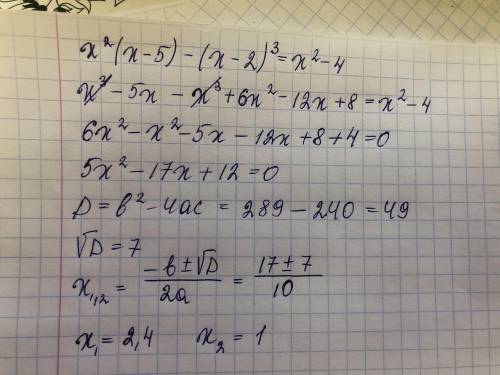 x²(x-5) - (x-2)³ = x² - 4
x³ - 5x - x³ + 6x² - 12x + 8 = x² - 4
6x² - x² - 5x - 12x + 8 + 4 = 0
5x² - 17x + 12 = 0
D = b² - 4ac = 289 - 240 = 49
√D = 7
x₁,₂ = (-b ± √D)/(2a) = (17 ± 7)/10
x₁ = 2,4 x₂ = 1